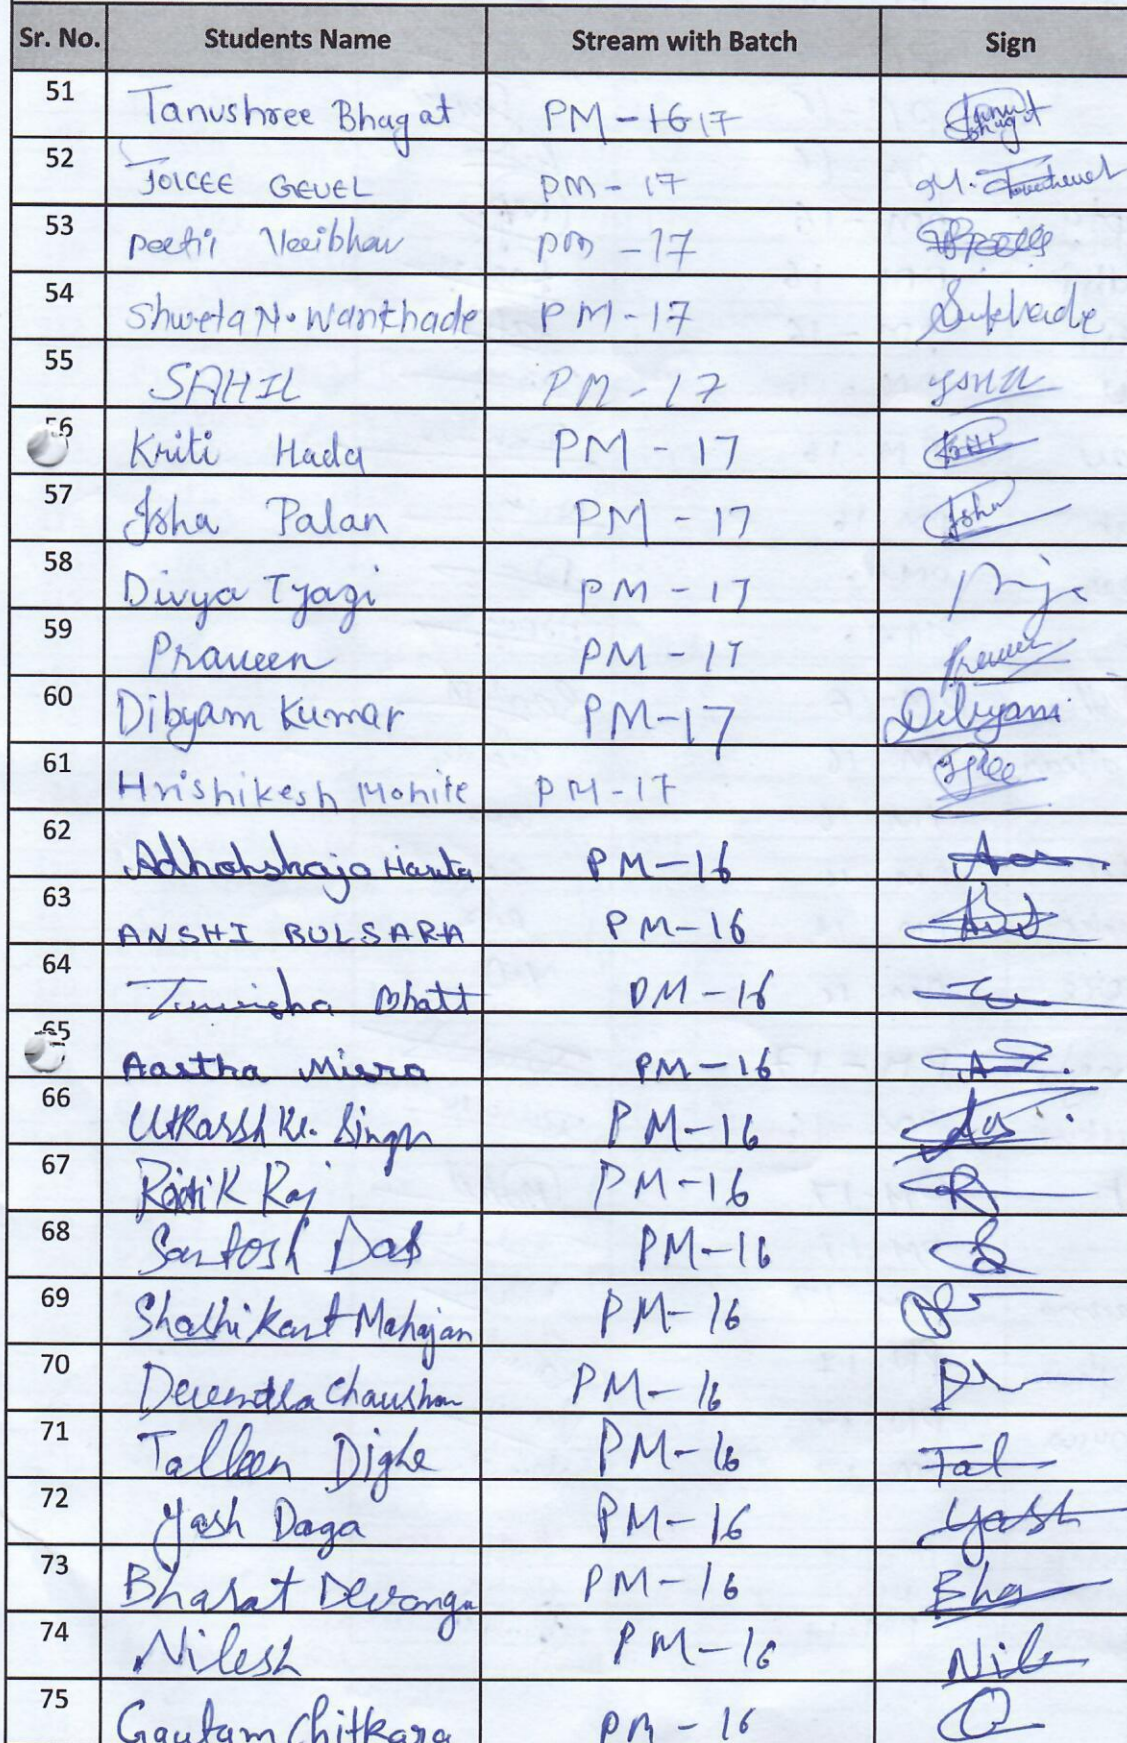 Sr. No. Students Name Stream with Batch Sign
51 Tanushree Bhagat PM-1617 Tanu Bhagat
52 JOICEE GEVEL PM-17
53 Peetii Vaibhav PM-17
54 Shweta N. Wankhade PM-17
55 SAHIL PM-17
56 Kriti Hada PM-17
57 Isha Palan PM-17 Isha
58 Divya Tyagi PM-17
59 Praveen PM-17 Praveen
60 Dibyam Kumar PM-17 Dibyam
61 Hrishikesh Mohite PM-17
62 Adhokshaja Harita PM-16
63 ANSHI BULSARA PM-16
64 Tanisha Bhatt PM-16
65 Aastha Misra PM-16 A
66 Utkarsh Kr. Singh PM-16
67 Ritik Raj PM-16 R
68 Santosh Das PM-16
69 Shashikant Mahajan PM-16
70 Devendra Chauhan PM-16
71 Talleen Dighe PM-16 Tal
72 Yash Daga PM-16 Yash
73 Bharat Devanga PM-16 Bha
74 Nilesh PM-16 Nile
75 Gautam Chitkara PM-16